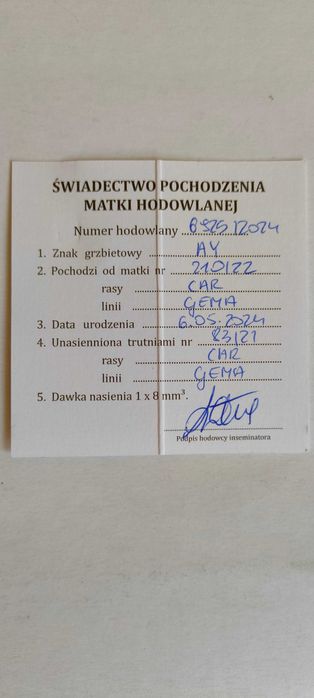 ŚWIADECTWO POCHODZENIA
MATKI HODOWLANEJ
Numer hodowlany 6925/2024
1. Znak grzbietowy AY
2. Pochodzi od matki nr 210/22
rasy CAR
linii GEMA
3. Data urodzenia 6.05.2024
4. Unasienniona trutniami nr 83/21
rasy CAR
linii GEMA
5. Dawka nasienia 1 x 8 mm³.
Podpis hodowcy inseminatora